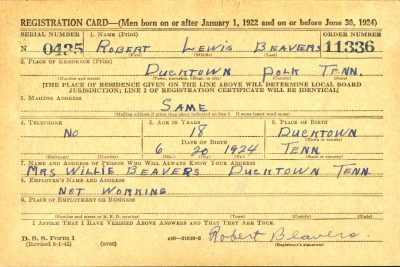 REGISTRATION CARD—(Men born on or after January 1, 1922 and on or before June 30, 1924)
SERIAL NUMBER 1. NAME (Print) ORDER NUMBER
N 0435 ROBERT LEWIS BEAVERS 11336
(First) (Middle) (Last)
2. PLACE OF RESIDENCE (Print)
DUCKTOWN POLK TENN.
(Number and street) (Town, township, village, or city) (County) (State)
[THE PLACE OF RESIDENCE GIVEN ON THE LINE ABOVE WILL DETERMINE LOCAL BOARD
JURISDICTION; LINE 2 OF REGISTRATION CERTIFICATE WILL BE IDENTICAL]
3. MAILING ADDRESS
SAME
(Mailing address if other than place indicated on line 2. If same insert word same)
4. TELEPHONE 5. AGE IN YEARS 6. PLACE OF BIRTH
NO 18 DUCKTOWN
DATE OF BIRTH (Town or county)
6 20 1924 TENN
(Exchange) (Number) (Mo.) (Day) (Yr.) (State or country)
7. NAME AND ADDRESS OF PERSON WHO WILL ALWAYS KNOW YOUR ADDRESS
MRS WILLIE BEAVERS DUCKTOWN TENN
8. EMPLOYER'S NAME AND ADDRESS
NOT WORKING
9. PLACE OF EMPLOYMENT OR BUSINESS
(Number and street or R. F. D. number) (Town) (County) (State)
I AFFIRM THAT I HAVE VERIFIED ABOVE ANSWERS AND THAT THEY ARE TRUE.
D. S. S. Form 1
(Revised 6-1-42) (over) Robert Beavers.
(Registrant's signature)